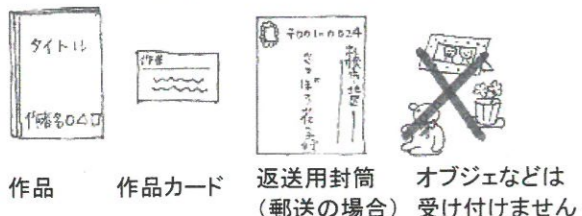 タイトル
作者名○△□
作者
〒001-0024
作品
作品カード
返送用封筒
(郵送の場合)
オブジェなどは
受け付けません